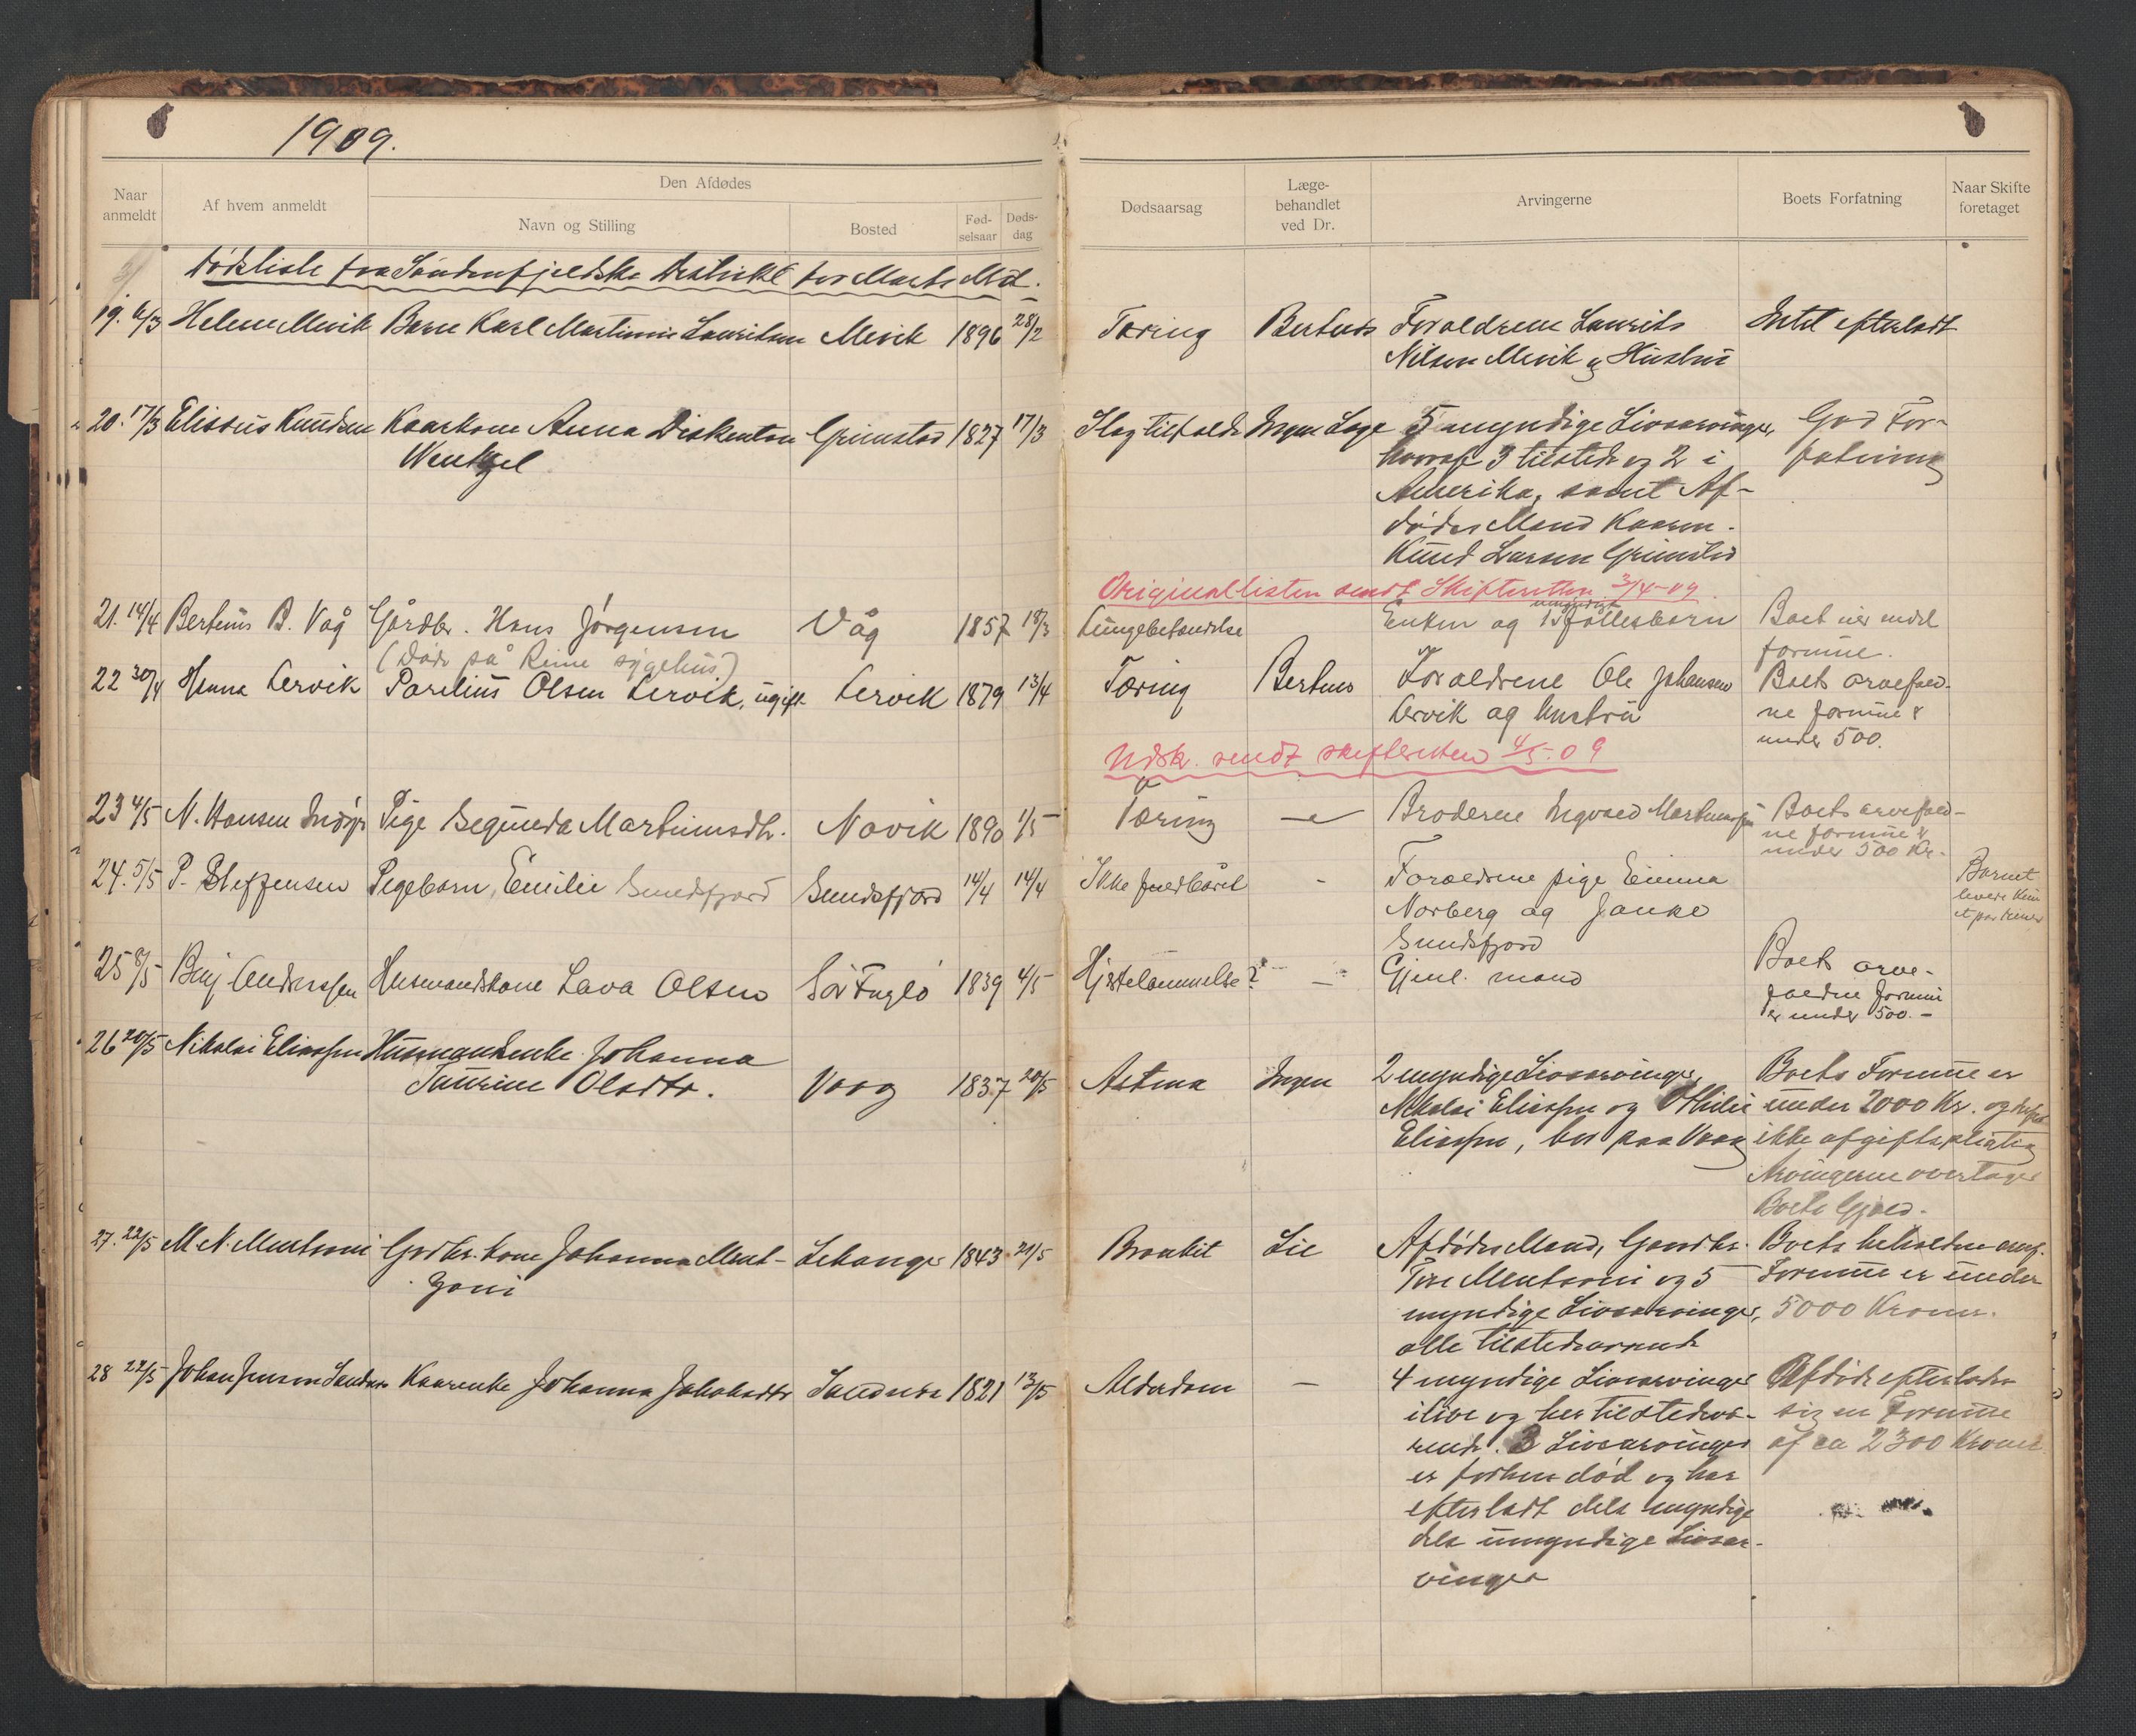 1909.
Naar anmeldt
Af hvem anmeldt
Den Afdødes
Navn og Stilling
Bosted
Fød-selsaar
Døds-dag
Dødsaarsag
Læge-behandlet ved Dr.
Arvingerne
Boets Forfatning
Naar Skifte foretaget
Dødsliste fra Søndenfjeldske Destrikt for Marts Md.
19. 6/3 Helene Mevik Barn Karl Martinus Lauritsen Mevik 1896 28/2 Tæring Forældrene Laurits Intet efterladt
Nilsen Mevik og Hustru
20. 17/3 Elisæus Knudsen Kaarkone Anna Grimstad 1827 17/3 Slagtilfælde Ingen Læge 5 myndige Livsarvinger, God For-
Wentzel hvoraf 3 tilstede og 2 i fatning
Amerika, samt Af-
dødes Mand Kaarm.
Knud Larsen Grimstad
Originallisten sendt Skifteretten 3/4-09.
umyndigt
21. 14/4 Bertinus B. Våg Gårdbr. Hans Jørgensen Våg 1857 18/3 Lungebetændelse Enken og 1 fællesbarn Boet eier endel
(Døde på Reine sygehus) formue.
22 30/4 Hanna Lervik Parelius Olsen Lervik, ugift Lervik 1879 13/4 Tæring Forældrene Ole Johansen Boets arvefald-
Lervik og hustru ne formue er
under 500.
Udskr. sendt skifteretten 4/5-09
23 4/5 N. Hansen Pige Martinusdtr. Novik 1890 1/5 Tæring — Broderen Ingvald Martinussen Boets arvefald-
ne formue er
under 500 Kr.
24. 5/5 P. Steffensen Pigebarn, Emilie Sundsfjord Sundsfjord 14/4 14/4 Ikke fuldbåret - Forældrene pige Emma Barnet
Norberg og levede kun
Sundsfjord et par timer
25 8/5 Benj Anderssen Husmandskone Lava Olsen Sør Fuglø 1839 4/5 Hjertelammelse? — Gjenl. mand Boets arve-
faldne formue
er under 500.-
26 20/5 Nikolai Eliassen Husmandsenke Johanna
Taurine Olsdtr. Vaag 1837 20/5 Astma Ingen 2 myndige Livsarvinger, Boets Formue er
Nikolai Eliassen og Othilie under 2000 Kr. og
Eliassen, bor paa Vaag ikke afgiftspligtig
Arvingerne overtager
Boets Gjæld.
27. 22/5 M. N. Mentzoni Gdbr. kone Johanna Ment- 1843 21/5 Bronkit Lie Afdødes Mand, Gaardbr. Boets beholdne arvef.
zoni Tore Mentzoni og 5 Formue er under
myndige Livsarvinger, 5000 Kroner.
alle tilstedeværende
28 22/5 Johan Jensen Kaarenke Johanna Jakobsdtr 1821 13/5 Alderdom — 4 myndige Livsarvinger Afdøde efterlader
ilive og her tilstedevæ- sig en Formue
rende. 3 Livsarvinger af ca 2300 Kroner
er forhen død og har
efterladt dels myndige
dels umyndige Livsar-
vinger